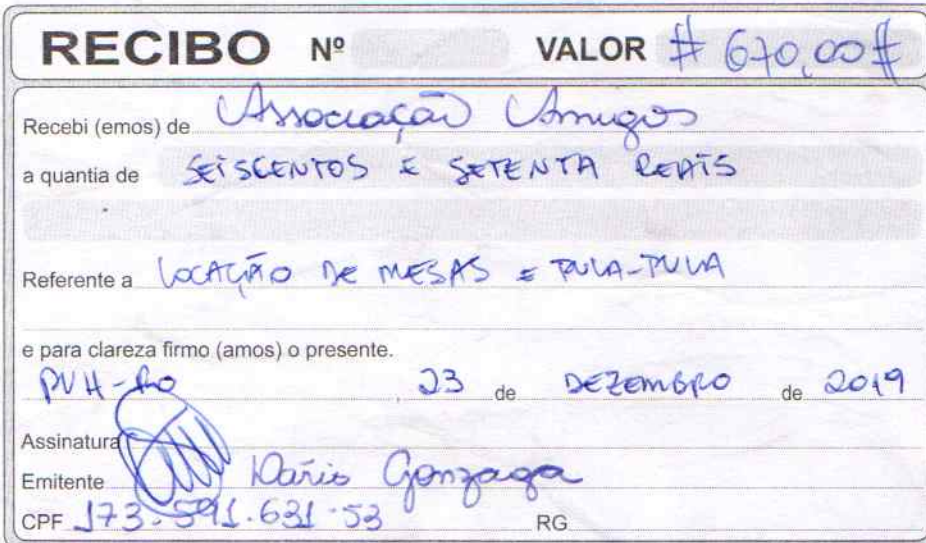 RECIBO Nº VALOR # 670,00 #
Recebi (emos) de Associação Amigos
a quantia de SEISCENTOS E SETENTA REAIS
Referente a LOCAÇÃO DE MESAS E PULA-PULA
e para clareza firmo (amos) o presente.
PVH-RO, 23 de DEZEMBRO de 2019
Assinatura
Emitente Dario Gonzaga
CPF 173.591.631-53 RG